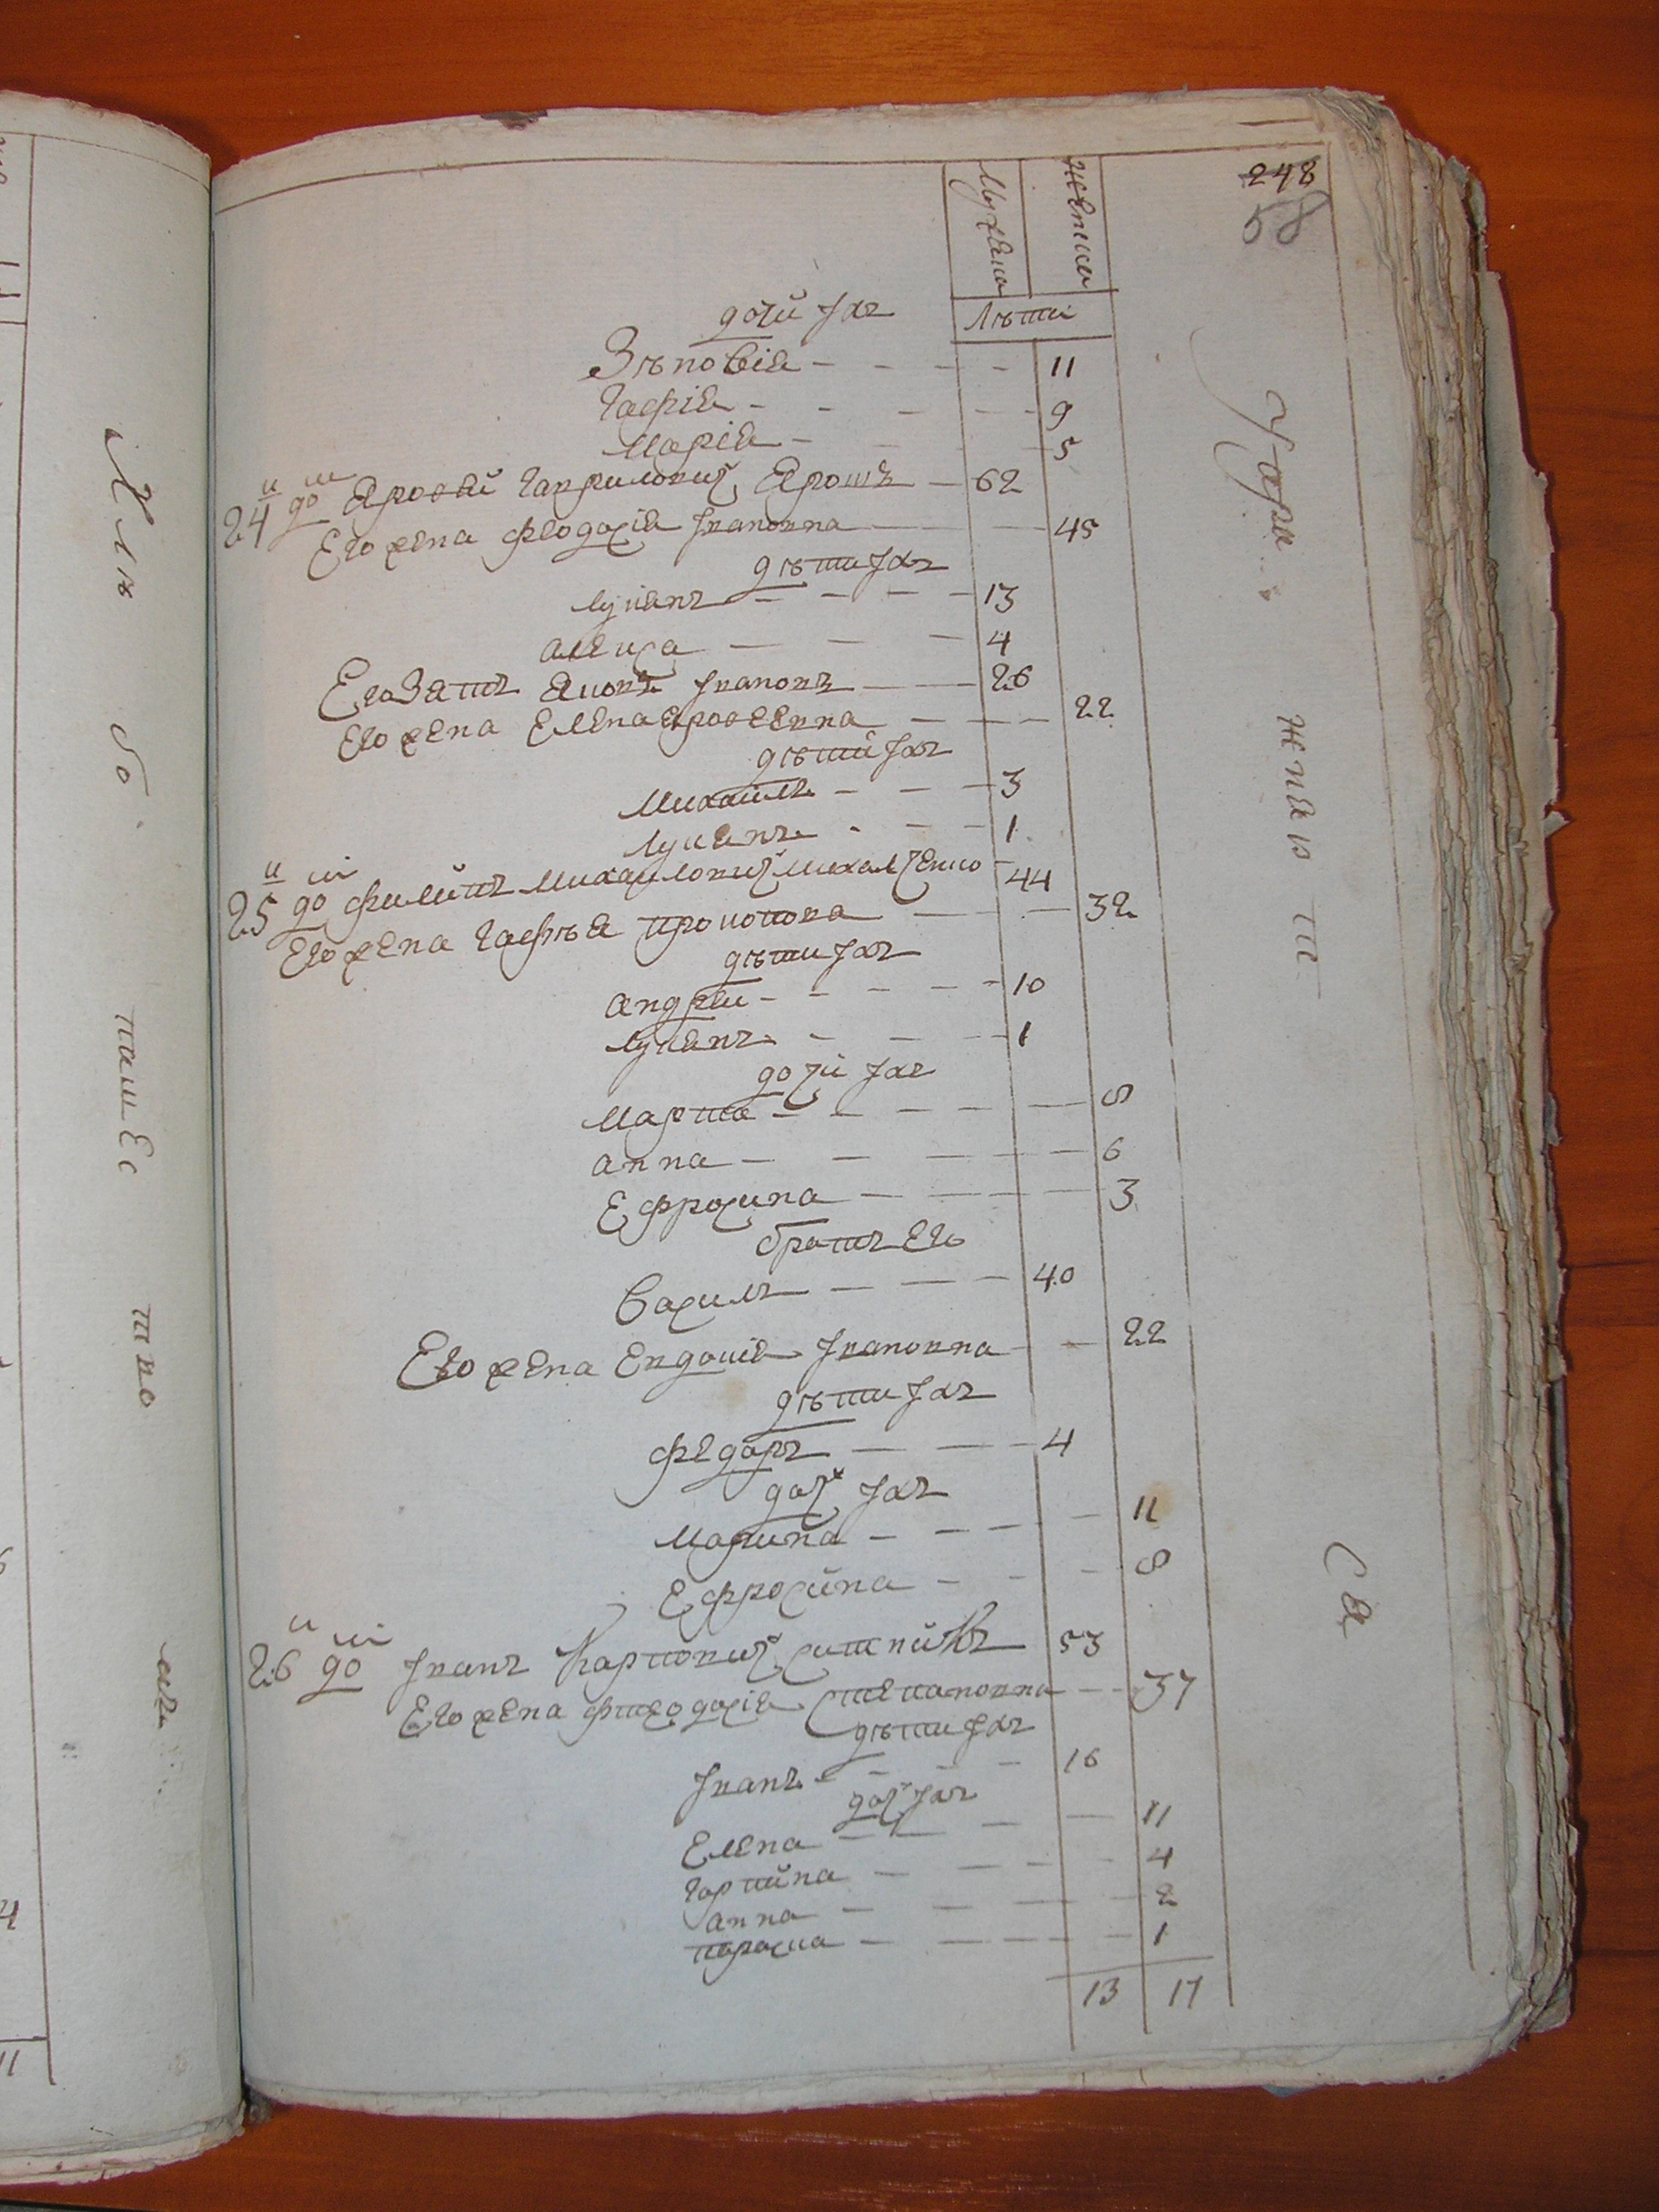 248
58
Мужеска
Женска
Лѣта
дочки ихъ
Зѣновія 11
Гафія 9
Марія 5
24 до Ярофѣй Гавриловичъ Ярошъ 62
Его жена Феодосія Ивановна 45
дѣти ихъ
Лукянъ 13
Алекса 4
Его Зять Яковъ Ивановъ 26
Его жена Елена Ярофеевна 22
дѣти ихъ
Михаилъ 3
Лукянъ 1
25 до Филипъ Михаиловичъ Михалченко 44
Его жена Гафѣя Прокопова 32
дѣти ихъ
Андреи 10
Лукянъ 1
дочки ихъ
Марта 8
Анна 6
Ефросина 3
братъ Его
Василь 40
Его жена Евдокія Ивановна 22
дѣти ихъ
Федоръ 4
доч ихъ
Марина 11
Ефросина 8
26 до Иванъ Карповичъ Ситникъ 53
Его жена Фтеодосія Степановна 37
дѣти ихъ
Иванъ 16
доч ихъ
Елена 11
Гарпина 4
Анна 2
Параска 1
13 17